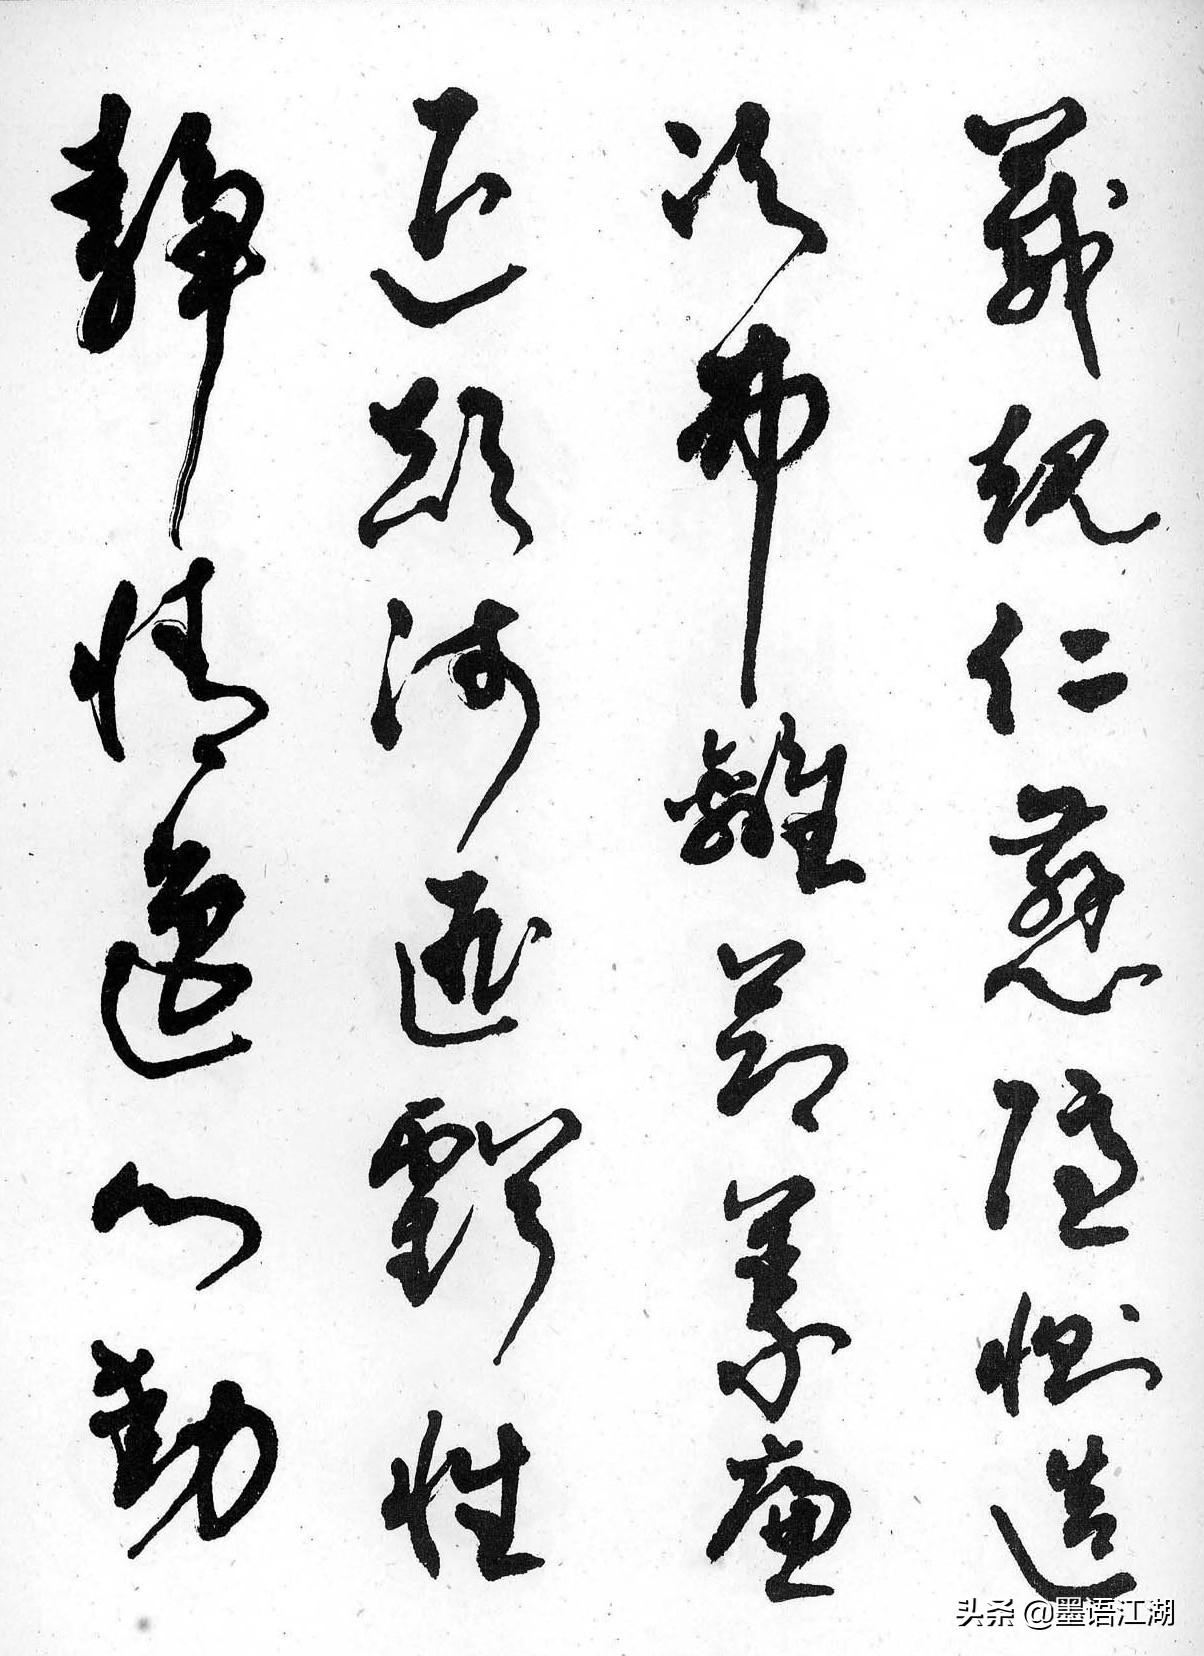 箴規仁慈隱惻造
次弗離節義廉
退顛沛匪虧性
靜情逸心動
头条 @墨语江湖